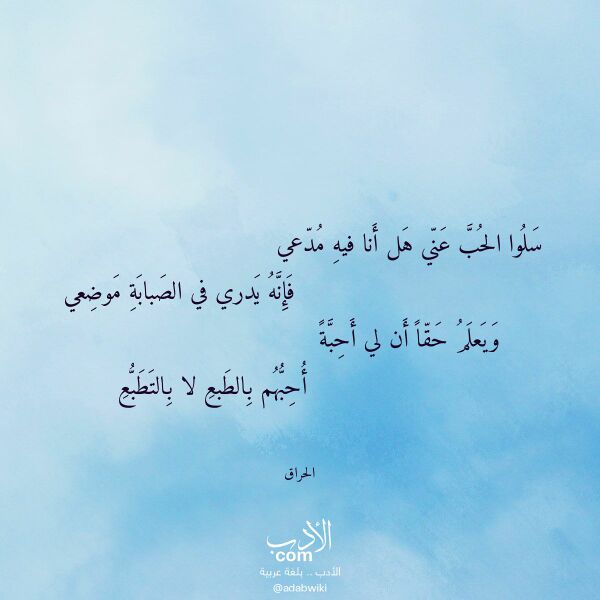 سَلُوا الحُبَّ عَنّي هَل أَنا فيهِ مُدّعي
فَإِنَّهُ يَدري في الصَبابَةِ مَوضِعي
وَيَعلَمُ حَقّاً أَن لي أَحِبَّةً
أُحِبُّهُم بِالطَبعِ لا بِالتَطَبُّعِ
الحراق
الأدب
com
الأدب .. بلغة عربية
@adabwiki